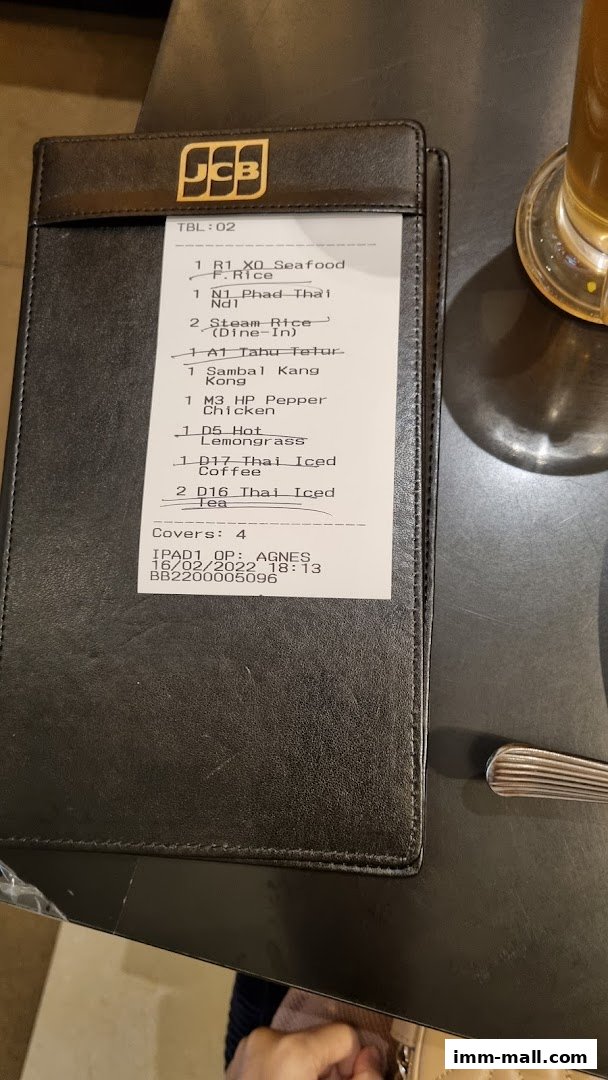 JCB
TBL:02
1 R1 XO Seafood
F.Rice
1 N1 Phad Thai
Ndl
2 Steam Rice
(Dine-In)
1 A1 Tahu Telur
1 Sambal Kang
Kong
1 M3 HP Pepper
Chicken
1 D5 Hot
Lemongrass
1 D17 Thai Iced
Coffee
2 D16 Thai Iced
Tea
Covers: 4
IPAD1 OP: AGNES
16/02/2022 18:13
BB2200005096
imm-mall.com